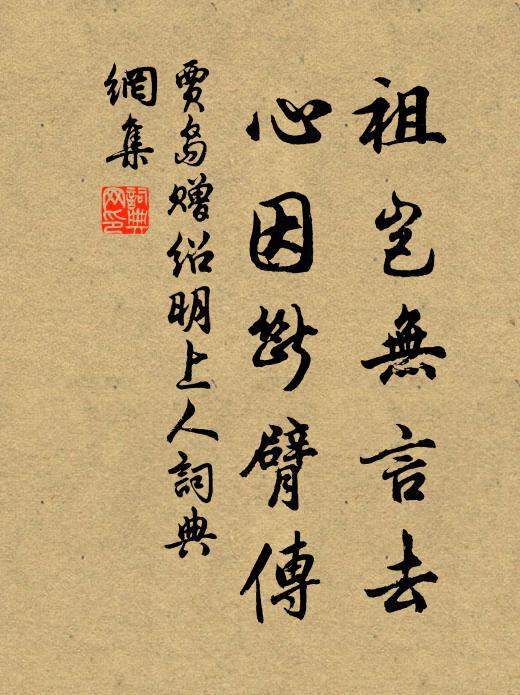 祖豈無言去
心因斷臂傳
賈島贈紹明上人詞典
網集
詞典
网印